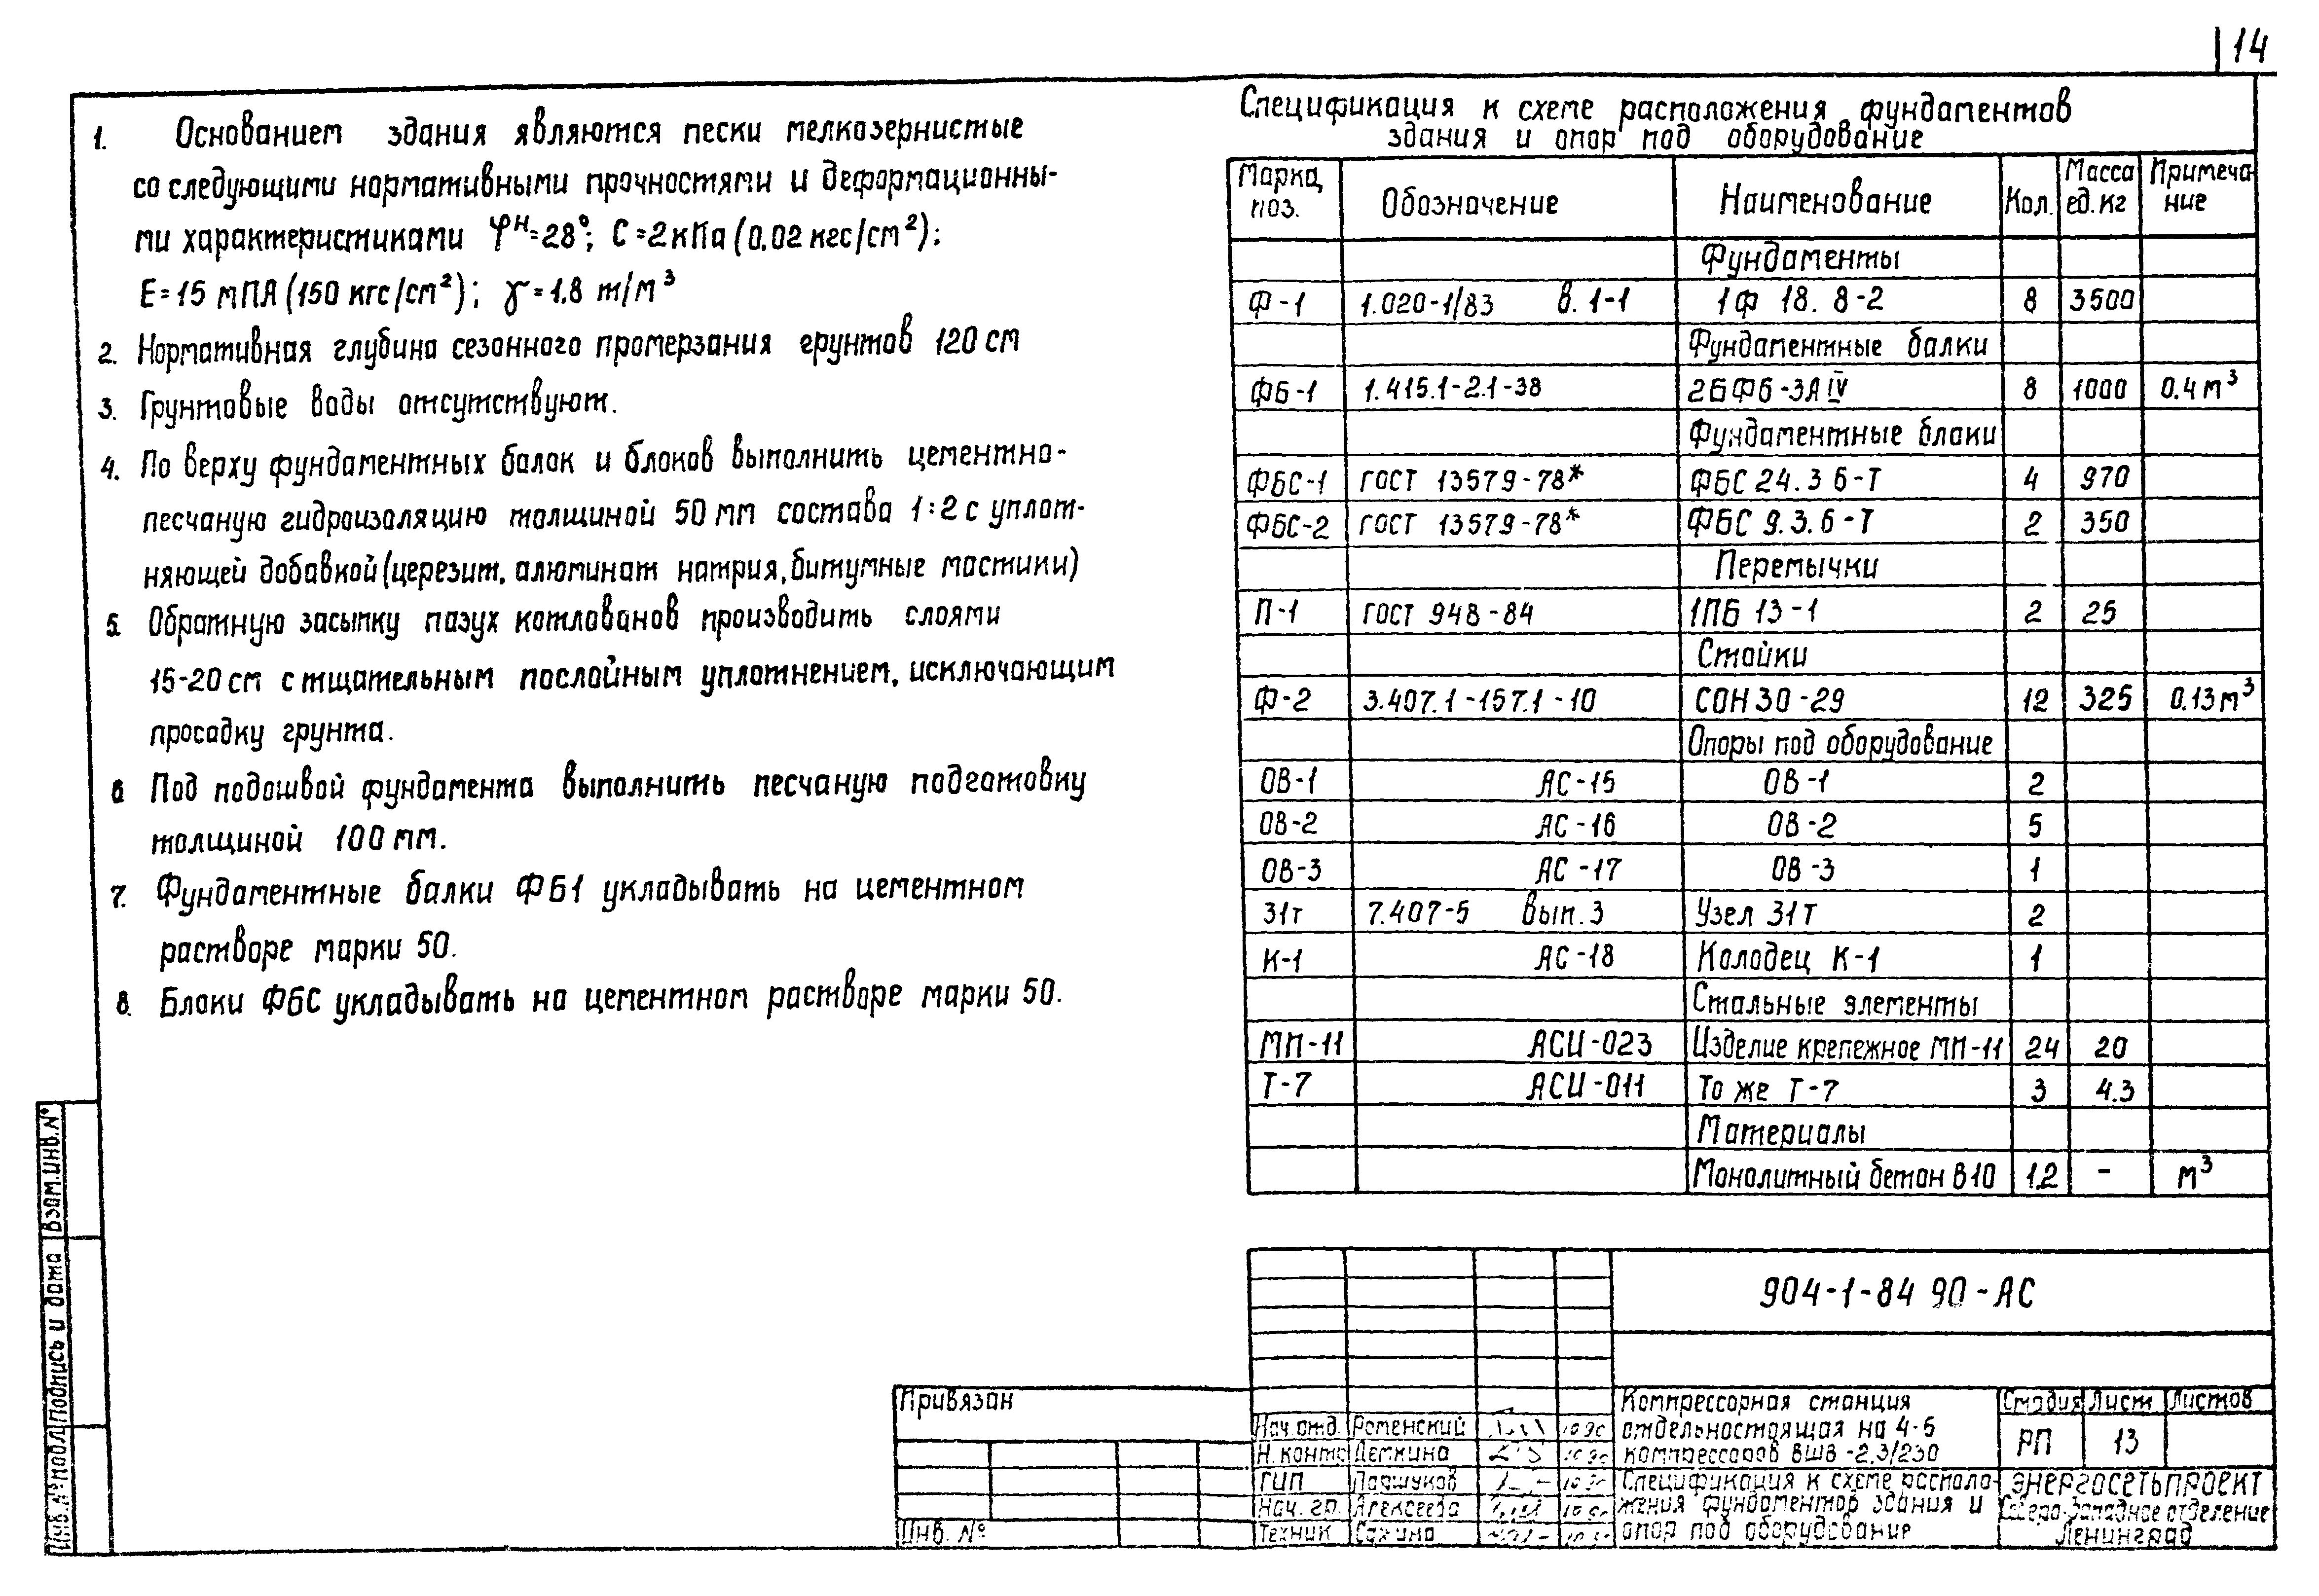 14
1. Основанием здания являются пески мелкозернистые
со следующими нормативными прочностями и деформационны-
ми характеристиками φᴴ=28°; С=2кПа (0.02 кгс/см²);
E=15 МПА (150 кгс/см²); γ=1.8 т/м³
2. Нормативная глубина сезонного промерзания грунтов 120 см
3. Грунтовые воды отсутствуют.
4. По верху фундаментных балок и блоков выполнить цементно-
песчаную гидроизоляцию толщиной 50 мм состава 1:2 с уплот-
няющей добавкой (церезит, алюминат натрия, битумные мастики)
5. Обратную засыпку пазух котлованов производить слоями
15-20 см с тщательным послойным уплотнением, исключающим
просадку грунта.
6 Под подошвой фундамента выполнить песчаную подготовку
толщиной 100 мм.
7. Фундаментные балки ФБ1 укладывать на цементном
растворе марки 50.
8. Блоки ФБС укладывать на цементном растворе марки 50.
Спецификация к схеме расположения фундаментов
здания и опор под оборудование
Марка, поз. Обозначение Наименование Кол. Масса ед. кг Примеча-ние
Фундаменты
Ф-1 1.020-1/83 в. 1-1 1Ф 18. 8-2 8 3500
Фундаментные балки
ФБ-1 1.415.1-2.1-38 2БФ6-3АIV 8 1000 0.4 м³
Фундаментные блоки
ФБС-1 ГОСТ 13579-78* ФБС 24.3 6-Т 4 970
ФБС-2 ГОСТ 13579-78* ФБС 9.3.6-Т 2 350
Перемычки
П-1 ГОСТ 948-84 1ПБ 13-1 2 25
Стойки
Ф-2 3.407.1-157.1-10 СОН 30-29 12 325 0.13 м³
Опоры под оборудование
ОВ-1 АС-15 ОВ-1 2
ОВ-2 АС-16 ОВ-2 5
ОВ-3 АС-17 ОВ-3 1
31т 7.407-5 Вып. 3 Узел 31т 2
К-1 АС-18 Колодец К-1 1
Стальные элементы
МП-11 АСИ-023 Изделие крепежное МП-11 24 20
Т-7 АСИ-011 То же Т-7 3 4.3
Материалы
Монолитный бетон В10 1.2 - м³
904-1-84 90-АС
Привязан
Инв. №
Нач. отд. Роменский 10.90
Н. контр Демкина 10.90
ГИП Паршуков 10.90
Нач. гр. Алексеева 10.90
Техник Сахина
Компрессорная станция
отдельностоящая на 4-5
компрессоров ВШВ-2.3/230
Стадия Лист Листов
РП 13
Спецификация к схеме располо-
жения фундаментов здания и
опор под оборудование
ЭНЕРГОСЕТЬПРОЕКТ
Северо-Западное отделение
Ленинград
Инв. № подл. Подпись и дата Взам. инв. №